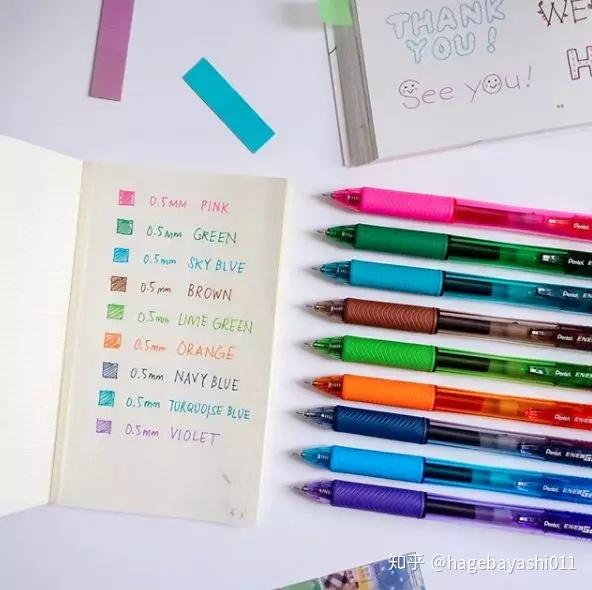 THANK
YOU!
See you!
0.5MM PINK
0.5mm GREEN
0.5mm SKY BLUE
0.5mm BROWN
0.5mm LIME GREEN
0.5mm ORANGE
0.5mm NAVY BLUE
0.5mm TURQUOISE BLUE
0.5mm VIOLET
Pentel
Pentel ENER
Pentel ENER
Pentel ENE
Pentel ENE
Pentel
Pentel ENERG
Pentel ENERG
Pentel ENERG
知乎 @hagebayashi011